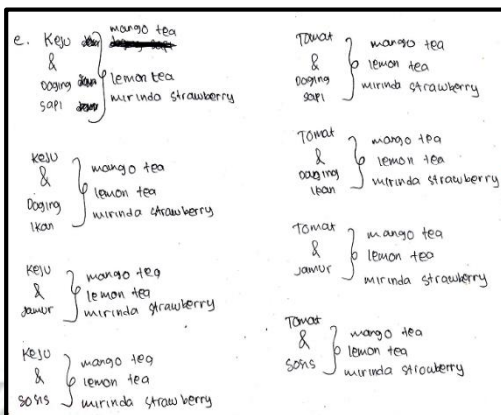 e. Keju
&
Daging
sapi
mango tea
lemon tea
mirinda strawberry
Keju
&
Daging
Ikan
mango tea
lemon tea
mirinda strawberry
Keju
&
jamur
mango tea
lemon tea
mirinda strawberry
Keju
&
sosis
mango tea
lemon tea
mirinda strawberry
Tomat
&
Daging
sapi
mango tea
lemon tea
mirinda strawberry
Tomat
&
Daging
Ikan
mango tea
lemon tea
mirinda strawberry
Tomat
&
jamur
mango tea
lemon tea
mirinda strawberry
Tomat
&
sosis
mango tea
lemon tea
mirinda strawberry